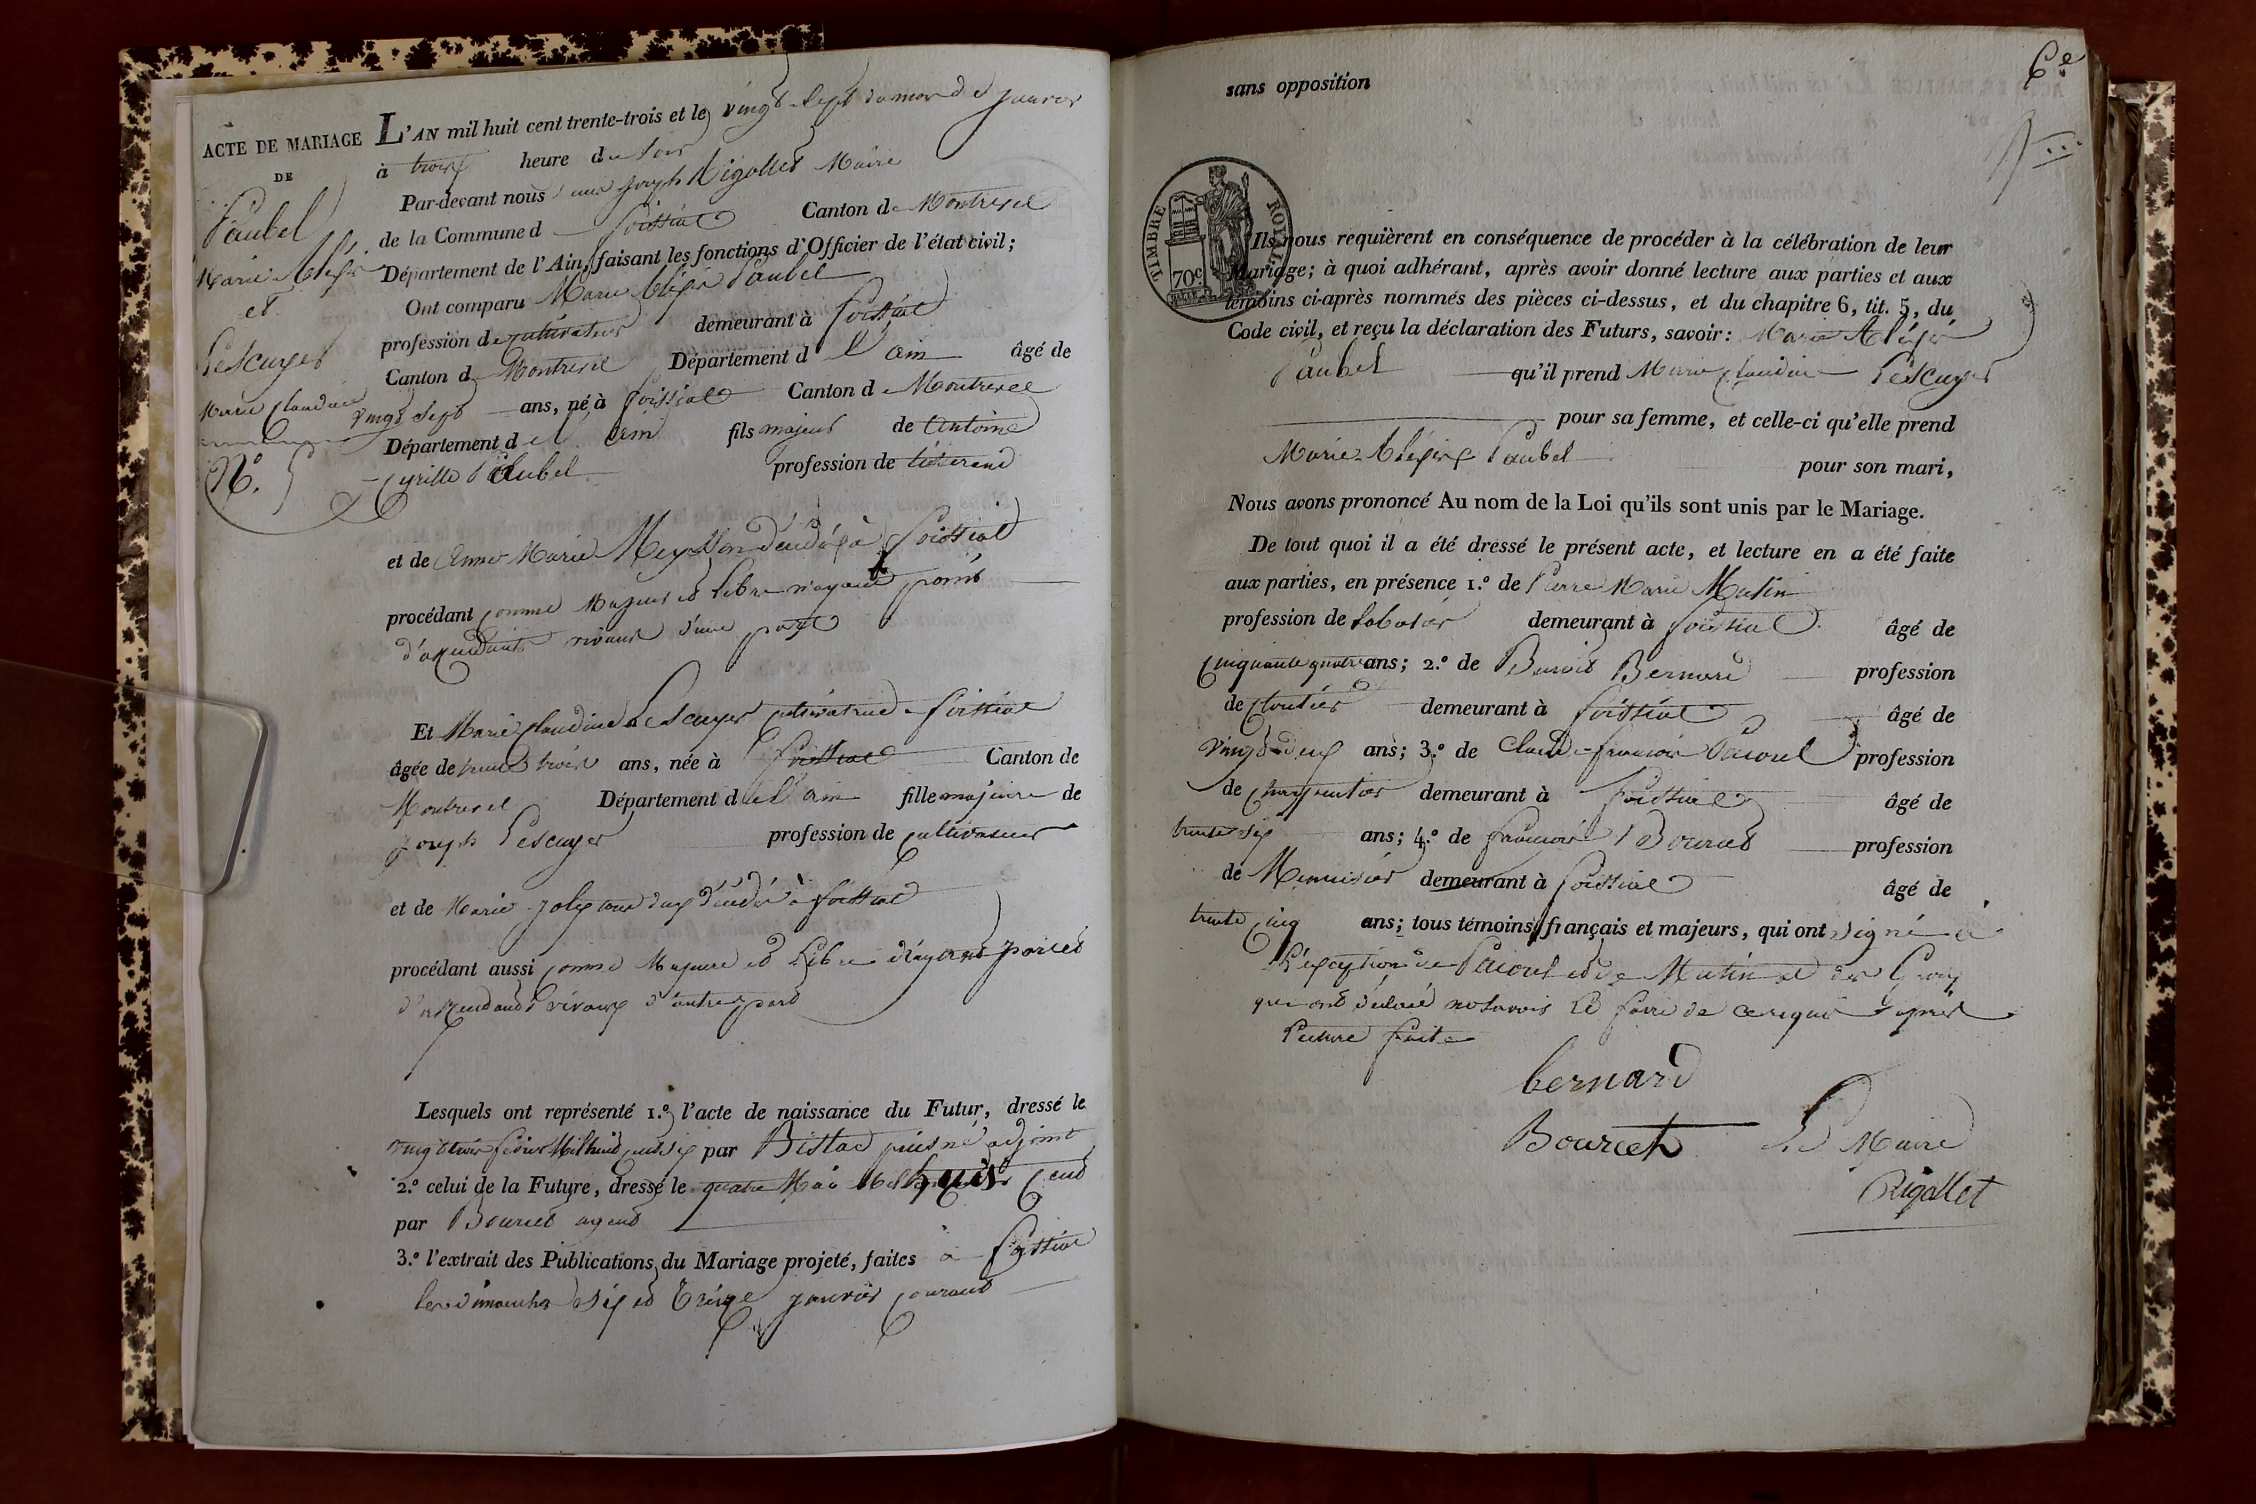 ACTE DE MARIAGE
DE
Paubel
Marie
et
Lescuyer
Marie Claudine
N.º 5
L'AN mil huit cent trente-trois et le vingt sept du mois de janvier
à trois heure du soir
Par-devant nous Joseph Rigollet Maire
de la Commune d Foissiat Canton de Montrevel
Département de l'Ain, faisant les fonctions d'Officier de l'état civil;
Ont comparu Marie Paubel
profession de cultivateur demeurant à Foissiat
Canton de Montrevel Département d l'ain âgé de
vingt sept ans, né à Foissiat Canton de Montrevel
Département de l'ain fils majeur de Antoine
Cyrille Paubel profession de tisserand
et de Anne Marie décédés à Foissiat
procédant comme Majeur et libre n'ayant point
d'ascendants vivant d'une part
Et Marie Claudine Lescuyer cultivatrice Foissiat
âgée de trente trois ans, née à Foissiat Canton de
Montrevel Département de l'ain fille majeure de
joseph Lescuyer profession de cultivateur
et de Marie joly tous deux décédés à foissiat
procédant aussi comme Majeure et Libre n'ayant point
d'ascendants vivants d'autre part
Lesquels ont représenté 1.º l'acte de naissance du Futur, dressé le
vingt trois Mil huit cent six par puisné adjoint
2.º celui de la Future, dressé le quatre Mai Mil huit Cent
par Bourcet agent
3.º l'extrait des Publications du Mariage projeté, faites à Foissiat
les dimanches six et treize janvier courant
6e
sans opposition
TIMBRE ROYAL
70c
Ils nous requièrent en conséquence de procéder à la célébration de leur
Mariage; à quoi adhérant, après avoir donné lecture aux parties et aux
témoins ci-après nommés des pièces ci-dessus, et du chapitre 6, tit. 5, du
Code civil, et reçu la déclaration des Futurs, savoir: Marie
Paubel qu'il prend Marie claudine Lescuyer
pour sa femme, et celle-ci qu'elle prend
Marie Paubel pour son mari,
Nous avons prononcé Au nom de la Loi qu'ils sont unis par le Mariage.
De tout quoi il a été dressé le présent acte, et lecture en a été faite
aux parties, en présence 1.º de Pierre Marie Mutin
profession de sabotier demeurant à foissiat âgé de
cinquante quatre ans; 2.º de Benoit Bernard profession
de cloutier demeurant à foissiat âgé de
vingt-deux ans; 3.º de Claude-françois profession
de charpentier demeurant à foissiat âgé de
trente six ans; 4.º de françois Bourcet profession
de Menuisier demeurant à foissiat âgé de
trente cinq ans; tous témoins français et majeurs, qui ont signé à
l'exception de et de Mutin et des
qui ont déclaré ne savoir le faire de ce requis après
lecture faite
bernard
Bourcet Le Maire
Rigollet